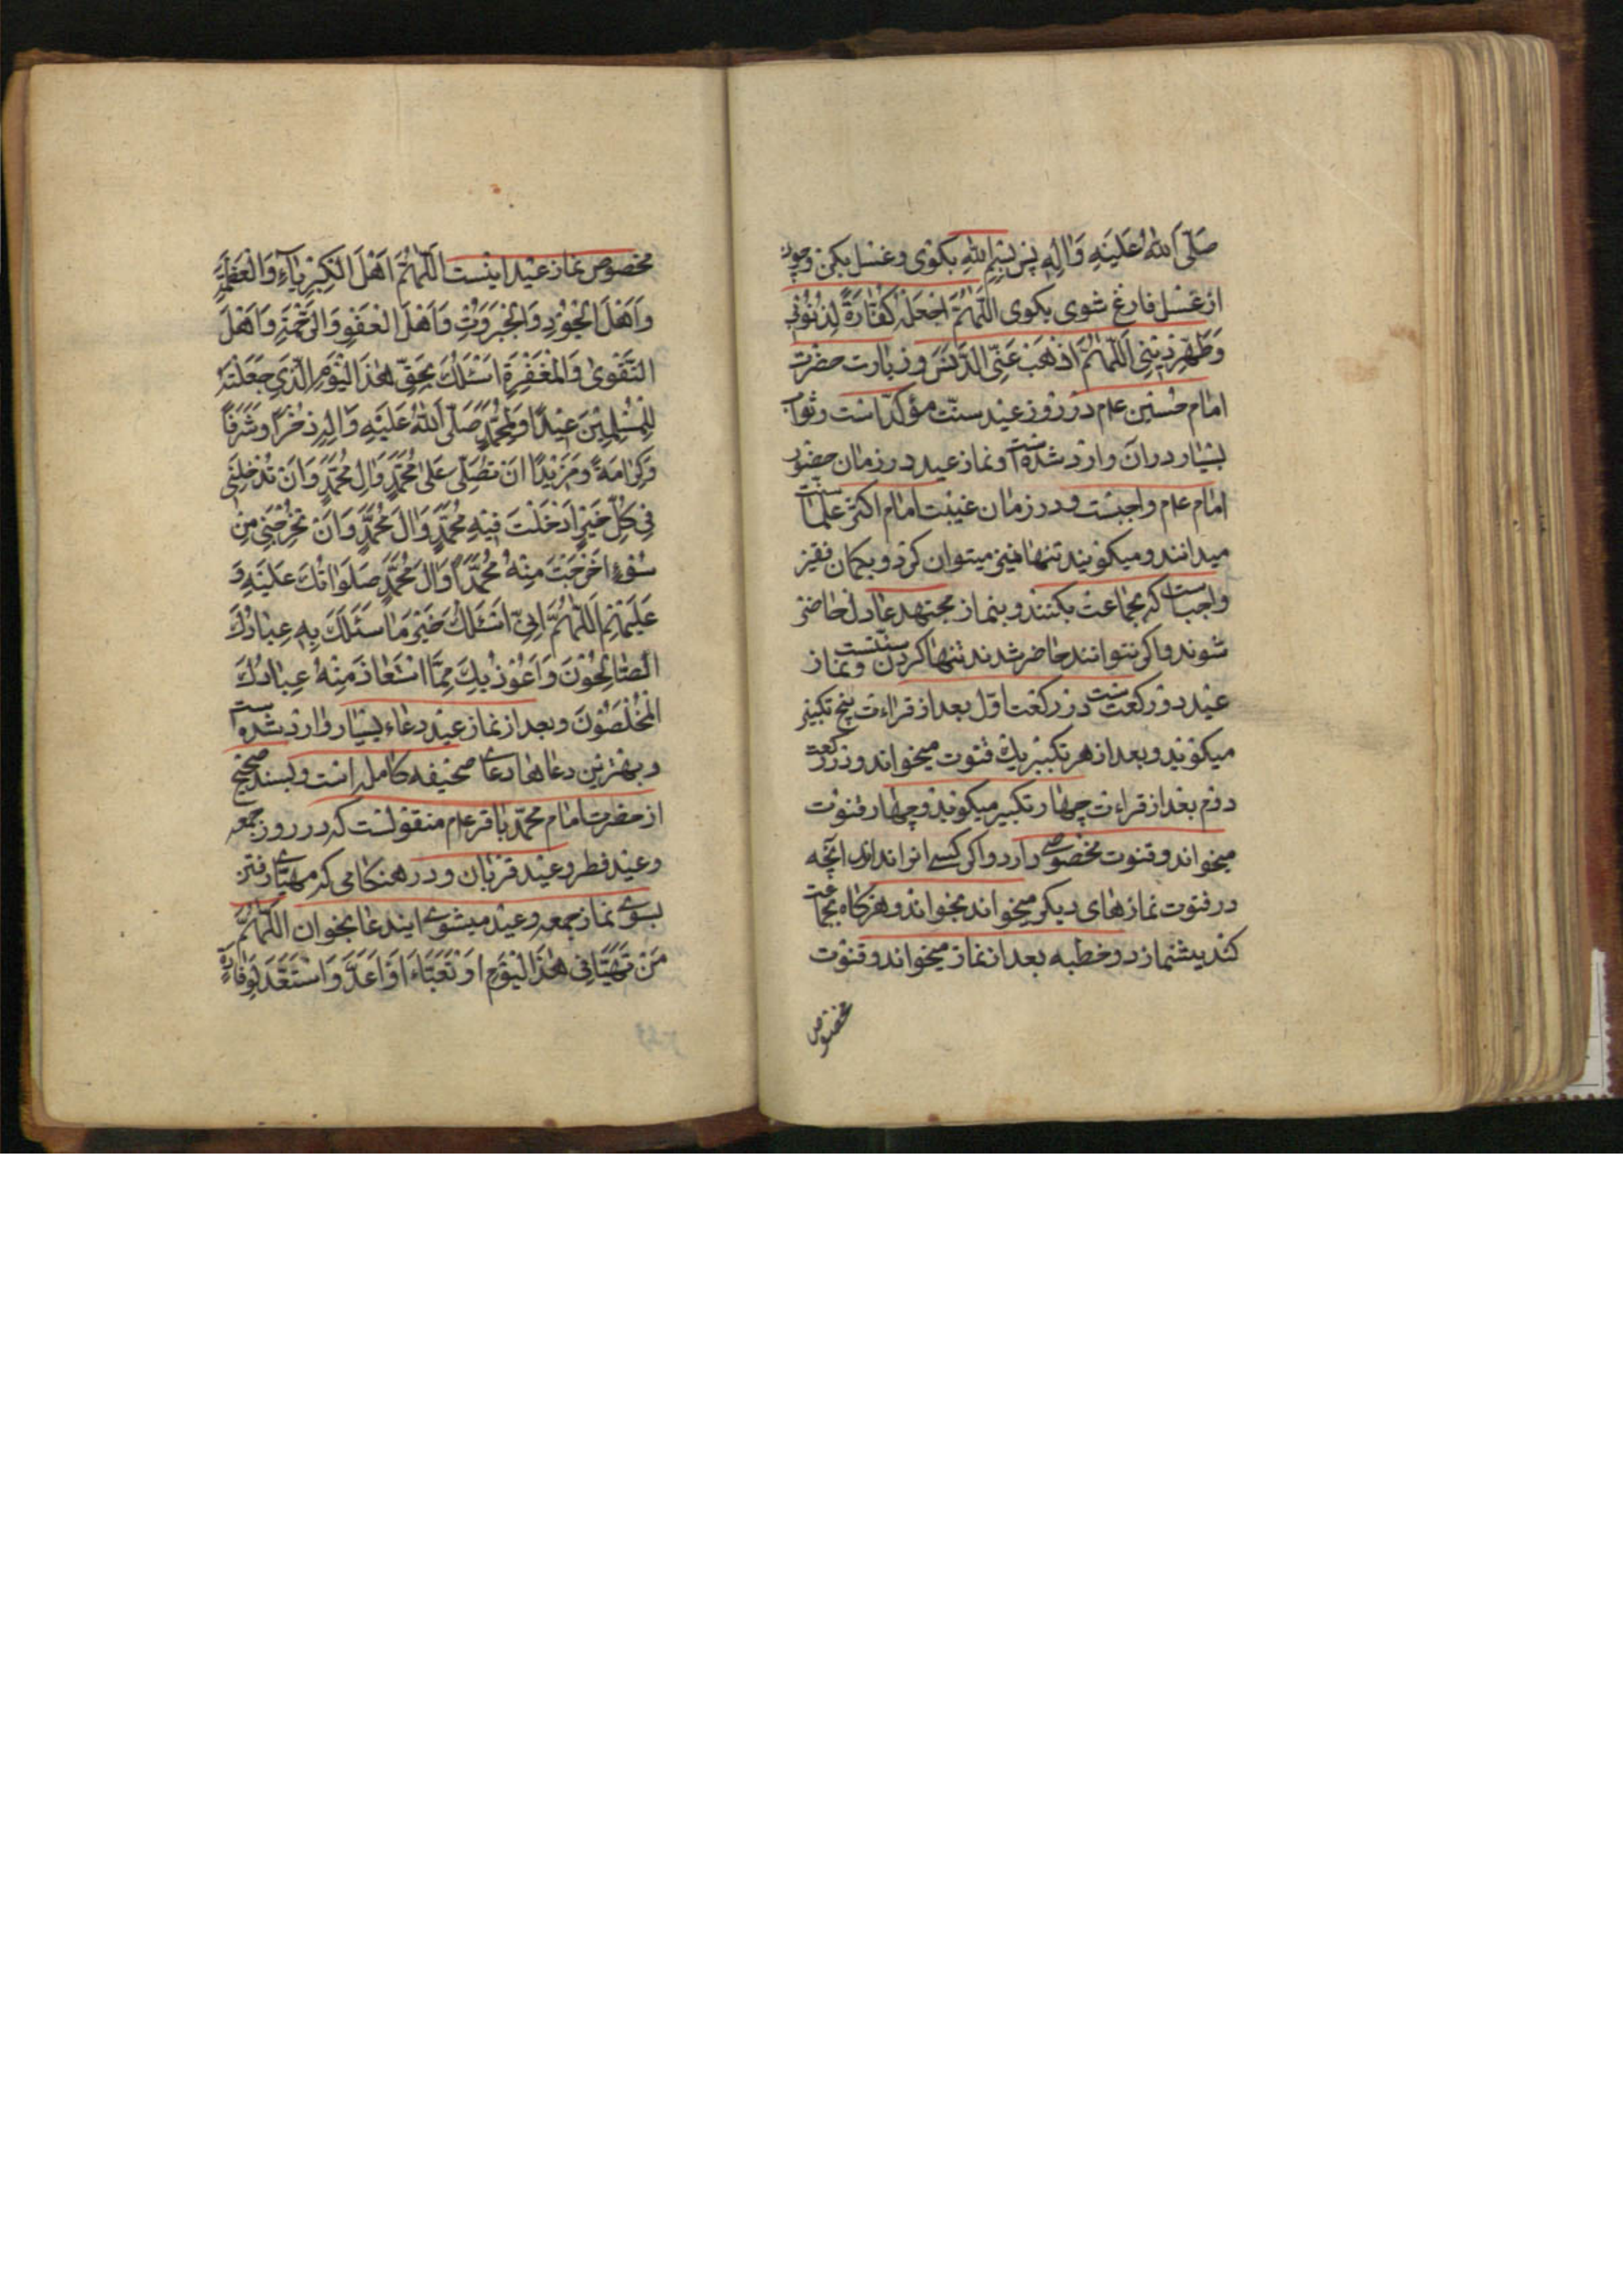 صَلَّی اللهُ عَلَیْهِ وَاٰلِهٖ پس بِسْمِ اللهِ بکوی و غسل بکن و چون
از غسل فارغ شوی بکوی اَللّٰهُمَّ اجْعَلْهُ كَفَّارَةً لِذُنُوْبِي
وَطَهِّرْ دِيْنِي اَللّٰهُمَّ اذْهَبْ عَنِّي الدَّنَسَ و زیارت حضرت
امام حسین عام در روز عید سنّت مؤکّد است و ثواب
بسیار در ان وارد شده است و نماز عید در زمان حضور
امام عام واجبست و در زمان غیبت امام اکثر علما سنت
میدانند و میکویند تنها نیز میتوان کرد و بکمان فقیر
واجب است که بجماعت بکنند و بنماز مجتهد عادل حاضر
شوند و اکر نتوانند حاضر شدند تنها کردن سنتست و نماز
عید دو رکعت ست در رکعت اوّل بعد از قراءت پنج تکبیر
میکویند و بعد از هر تکبیر یك قنوت میخواند و در رکعت
دوم بعد از قراءت چهار تکبیر میکویند و چهار قنوت
میخواند و قنوت مخصوصے دارد و اکر کسے انرا نداند انچه
در قنوت نمازهای دیکر میخواند بخواند و هرکاه بجماعت
کند پیشنماز دو خطبه بعد از نماز میخواند و قنوت
مخصوص
مخصوص نماز عید اینست اَللّٰهُمَّ اَهْلَ الْكِبْرِيَآءِ وَالْعَظَمَةِ
وَاَهْلَ الْجُوْدِ وَالْجَبَرُوْتِ وَاَهْلَ الْعَفْوِ وَالرَّحْمَةِ وَاَهْلَ
التَّقْوٰى وَالْمَغْفِرَةِ اَسْئَلُكَ بِحَقِّ هٰذَا الْيَوْمِ الَّذِي جَعَلْتَهُ
لِلْمُسْلِمِيْنَ عِيْدًا وَلِمُحَمَّدٍ صَلَّى اللهُ عَلَيْهِ وَاٰلِهٖ ذُخْرًا وَشَرَفًا
وَكَرَامَةً وَمَزِيْدًا اَنْ تُصَلِّيَ عَلٰى مُحَمَّدٍ وَاٰلِ مُحَمَّدٍ وَاَنْ تُدْخِلَنِي
فِي كُلِّ خَيْرٍ اَدْخَلْتَ فِيْهِ مُحَمَّدٍ وَاٰلَ مُحَمَّدٍ وَاَنْ تُخْرِجَنِي مِنْ
سُوْءٍ اَخْرَجْتَ مِنْهُ مُحَمَّدًا وَاٰلَ مُحَمَّدٍ صَلَوَاتُكَ عَلَيْهِ وَ
عَلَيْهِمْ اَللّٰهُمَّ اِنِّي اَسْئَلُكَ خَيْرَ مَا سَئَلَكَ بِهٖ عِبَادُكَ
الصَّالِحُوْنَ وَاَعُوْذُ بِكَ مِمَّا اسْتَعَاذَ مِنْهُ عِبَادُكَ
الْمُخْلَصُوْنَ و بعد از نماز عید دعاء بسیار وارد شده است
و بهترین دعاها دعاے صحیفه کامله است و بسند صحیح
از حضرت امام محمّد باقر عام منقولست که در روز جمعه
و عید فطر و عید قربان و در هنکامی که مهیّاے رفتن
بسوے نماز جمعه و عید میشوے ایندعا بخوان اَللّٰهُمَّ
مَنْ تَهَيَّأَ فِي هٰذَا الْيَوْمِ اَوْ تَعَبَّاءَ اَوْ اَعَدَّ وَاسْتَعَدَّ لِوِفَادَةٍ